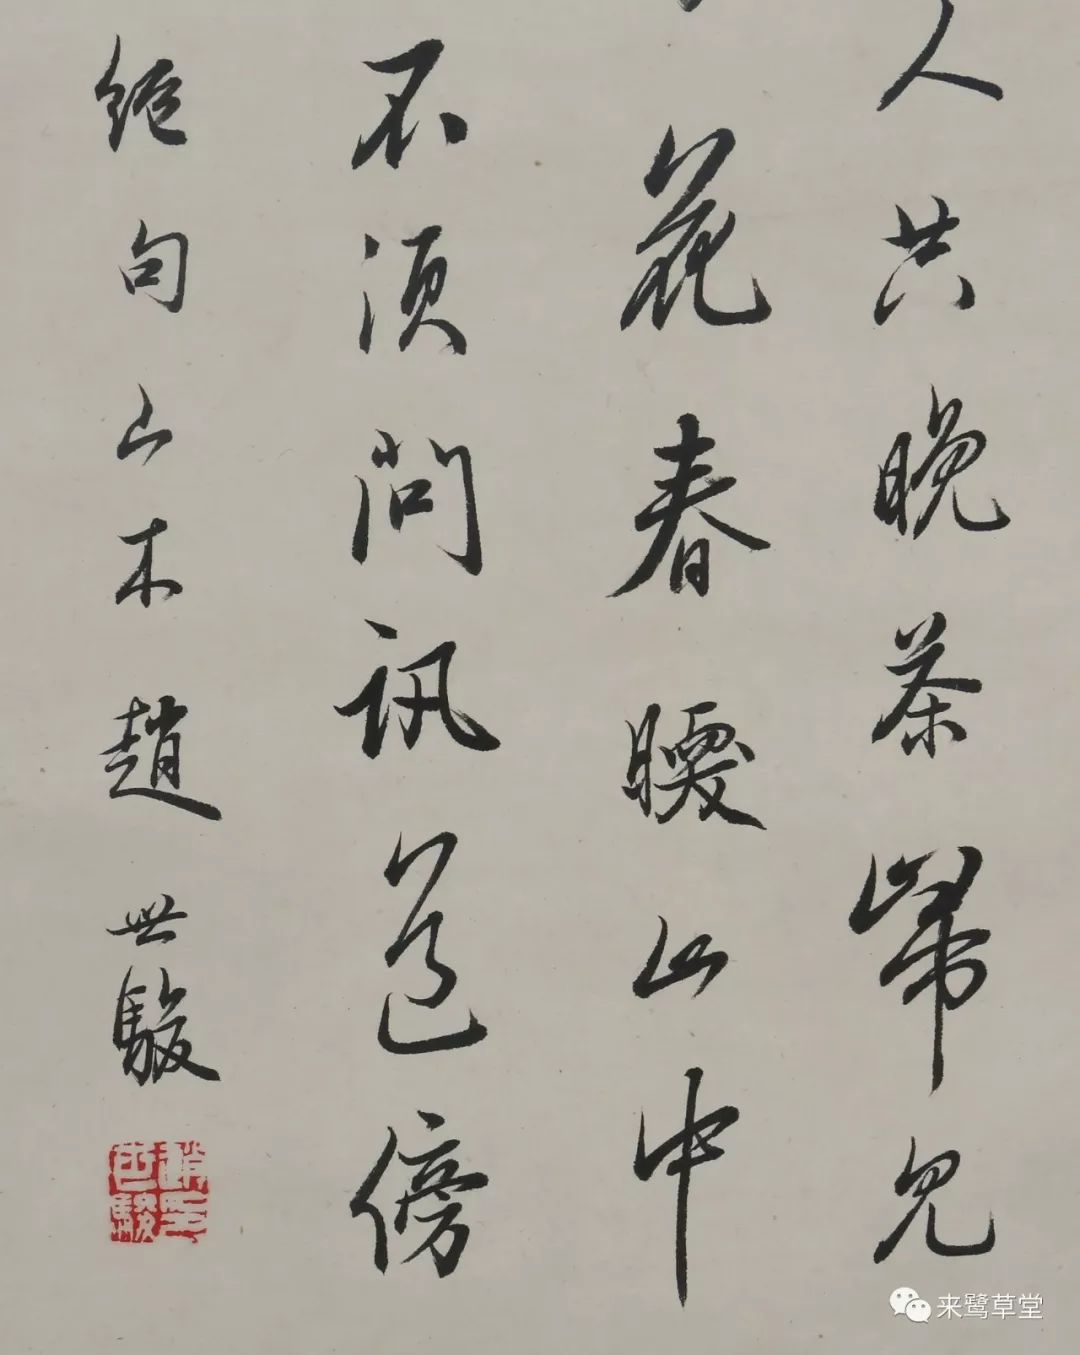 人共晚茶歸見
花春暖山中
不須問訊道傍
絕句山木趙世駿
趙世駿印
来鹭草堂